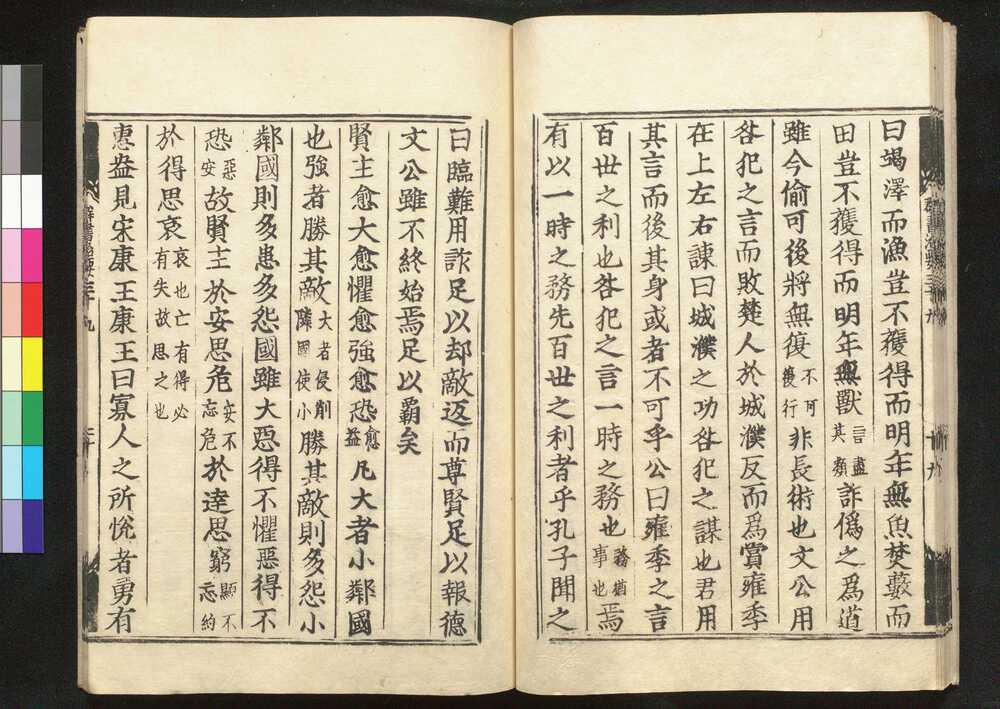 曰竭澤而漁豈不獲得而明年無魚焚藪而
田豈不獲得而明年無獸言盡其類詐僞之爲道
雖今偷可後將無復不可復行非長術也文公用
咎犯之言而敗楚人於城濮反而爲賞雍季
在上左右諫曰城濮之功咎犯之謀也君用
其言而後其身或者不可乎公曰雍季之言
百世之利也咎犯之言一時之務也務猶事也焉
有以一時之務先百世之利者乎孔子聞之
曰臨難用詐足以却敵返而尊賢足以報德
文公雖不終始焉足以霸矣
賢主愈大愈懼愈強愈恐愈益凡大者小鄰國
也強者勝其敵大者侵削隣國使小勝其敵則多怨小
鄰國則多患多怨國雖大惡得不懼惡得不
恐惡安故賢主於安思危安不忘危於達思窮顯不忘約
於得思哀哀也亡有得必有失故思之也
惠盎見宋康王康王曰寡人之所悅者勇有
群書治要三十九
十九
群書治要三十九
二十